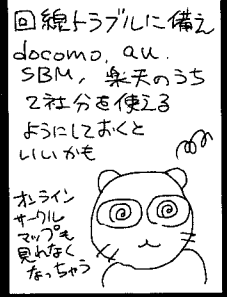 回線トラブルに備え
docomo, au.
SBM, 楽天のうち
2社分を使える
ようにしておくと
いいかも
オンライン
サークル
マップも
見れなく
なっちゃう